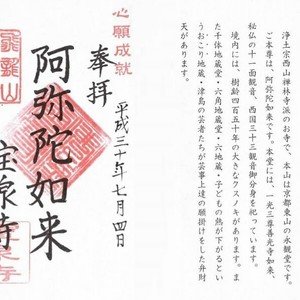 浄土宗西山禅林寺派のお寺で、本山は京都東山の永観堂です。
ご本尊は、阿弥陀如来です。本堂には、一光三尊善光寺如来、
秘仏の十一面観音、西国三十三観音御分身を祀っています。
境内には、樹齢四百五十年の大きなクスノキがあります。ま
た千体地蔵堂・六角地蔵堂・六地蔵・子どもの熱が下がるとい
うおこり地蔵・津島の芸者たちが芸事上達の願掛けをした弁財
天があります。
心願成就
平成三十年七月四日
奉拝
阿弥陀如来
宝泉寺